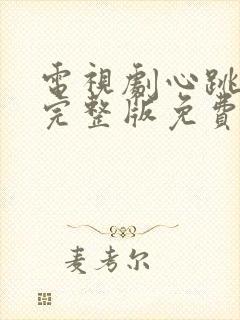 電視劇心跳
完整版免費
麦考尔